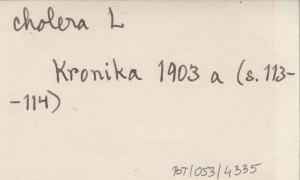 cholera L
Kronika 1903 a (s. 113-
-114)
BT/053/4335